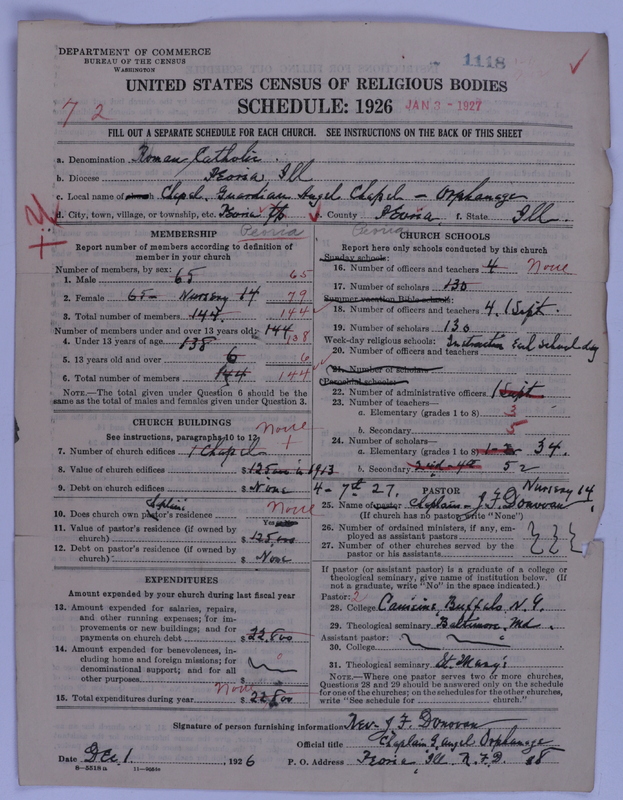 DEPARTMENT OF COMMERCE
BUREAU OF THE CENSUS
WASHINGTON
1118
UNITED STATES CENSUS OF RELIGIOUS BODIES
SCHEDULE: 1926 JAN 3 - 1927
7 2
FILL OUT A SEPARATE SCHEDULE FOR EACH CHURCH. SEE INSTRUCTIONS ON THE BACK OF THIS SHEET
a. Denomination Roman Catholic
b. Diocese Peoria Ill
c. Local name of church Chapel, Guardian Angel Chapel - Orphanage
d. City, town, village, or township, etc. Peoria County Peoria f. State Ill.
Peoria Peoria
MEMBERSHIP
Report number of members according to definition of member in your church
Number of members, by sex:
1. Male 65 65
2. Female 65- Nursery 14 79
3. Total number of members 144 144
Number of members under and over 13 years old: 144
4. Under 13 years of age 138 138
5. 13 years old and over 6 6
6. Total number of members 144 144
NOTE.—The total given under Question 6 should be the same as the total of males and females given under Question 3.
CHURCH BUILDINGS
See instructions, paragraphs 10 to 12
None
7. Number of church edifices 1 Chapel
8. Value of church edifices $ in 1913
9. Debt on church edifices $ None
10. Does church own pastor's residence None
Yes
11. Value of pastor's residence (if owned by church) $
12. Debt on pastor's residence (if owned by church) $ None
EXPENDITURES
Amount expended by your church during last fiscal year
13. Amount expended for salaries, repairs, and other running expenses; for improvements or new buildings; and for payments on church debt $ 22,800
14. Amount expended for benevolences, including home and foreign missions; for denominational support; and for all other purposes $
None
15. Total expenditures during year $ 22,800
CHURCH SCHOOLS
Report here only schools conducted by this church
Sunday schools:
16. Number of officers and teachers 4 None
17. Number of scholars 130
Summer vacation Bible schools:
18. Number of officers and teachers 4, 1 Supt.
19. Number of scholars 130
Week-day religious schools: Instruction Each School day
20. Number of officers and teachers
21. Number of scholars
Parochial schools:
22. Number of administrative officers 1 Supt
23. Number of teachers—
a. Elementary (grades 1 to 8) 3
b. Secondary 5
24. Number of scholars—
a. Elementary (grades 1 to 8) 34.
b. Secondary 52
4 - 7th 27. PASTOR Nursery 14
25. Name of pastor Chaplain - J. F. Donovan
(If church has no pastor, write "None")
26. Number of ordained ministers, if any, employed as assistant pastors
27. Number of other churches served by the pastor or his assistants
If pastor (or assistant pastor) is a graduate of a college or theological seminary, give name of institution below. (If not a graduate, write "No" in the space indicated.)
Pastor: 2
28. College Canisius, Buffalo, N.Y.
29. Theological seminary Baltimore, Md.
Assistant pastor:
30. College
31. Theological seminary St. Mary's
NOTE.—Where one pastor serves two or more churches, Questions 28 and 29 should be answered only on the schedule for one of the churches; on the schedules for the other churches, write "See schedule for church."
Signature of person furnishing information Rev. J. F. Donovan
Official title Chaplain G. Angel Orphanage
Date Dec 1, 1926 P. O. Address Peoria Ill R.F.D.
8-5518a